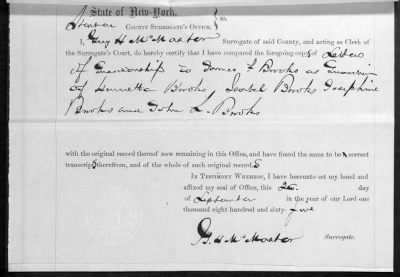 State of New-York.
Steuben COUNTY SURROGATE'S OFFICE. } ss.
I, Guy H McMaster Surrogate of said County, and acting as Clerk of
the Surrogate's Court, do hereby certify that I have compared the foregoing copy of Letters
of Guardianship to James F Brooks as Guardian
of Henrietta Brooks Isabel Brooks Josephine
Brooks and John L. Brooks
with the original record thereof now remaining in this Office, and have found the same to be correct
transcripts therefrom, and of the whole of such original records
IN TESTIMONY WHEREOF, I have hereunto set my hand and
affixed my seal of Office, this 26 day
of September in the year of our Lord one
thousand eight hundred and sixty-five
G. H McMaster Surrogate.